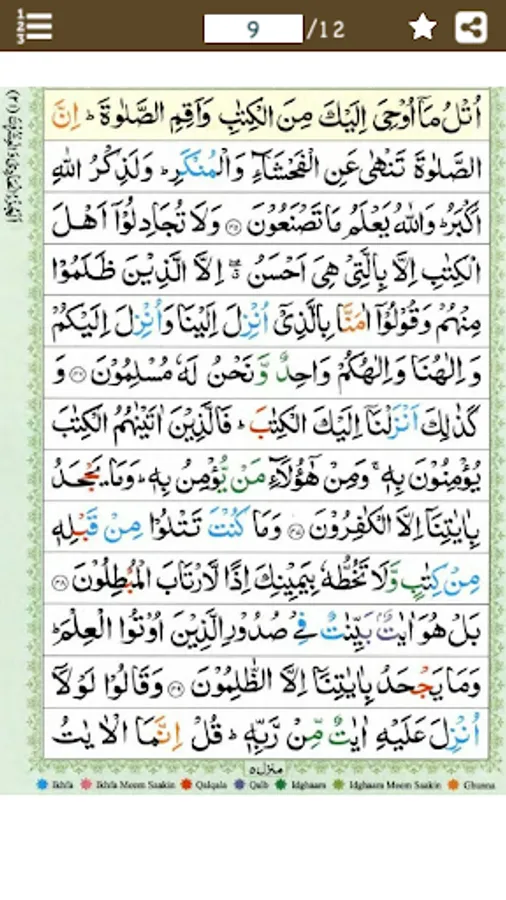 9 /12
اُتْلُ مَاۤ اُوْحِیَ اِلَیْكَ مِنَ الْكِتٰبِ وَاَقِمِ الصَّلٰوةَ ؕ اِنَّ
الصَّلٰوةَ تَنْهٰی عَنِ الْفَحْشَآءِ وَالْمُنْكَرِ ؕ وَلَذِكْرُ اللّٰهِ
اَكْبَرُ ؕ وَاللّٰهُ یَعْلَمُ مَا تَصْنَعُوْنَ ﴿۴۵﴾ وَلَا تُجَادِلُوْۤا اَهْلَ
الْكِتٰبِ اِلَّا بِالَّتِیْ هِیَ اَحْسَنُ ۖ اِلَّا الَّذِیْنَ ظَلَمُوْا
مِنْهُمْ وَقُوْلُوْۤا اٰمَنَّا بِالَّذِیْۤ اُنْزِلَ اِلَیْنَا وَاُنْزِلَ اِلَیْكُمْ
وَاِلٰهُنَا وَاِلٰهُكُمْ وَاحِدٌ وَّنَحْنُ لَهٗ مُسْلِمُوْنَ ﴿۴۶﴾ وَ
كَذٰلِكَ اَنْزَلْنَاۤ اِلَیْكَ الْكِتٰبَ ؕ فَالَّذِیْنَ اٰتَیْنٰهُمُ الْكِتٰبَ
یُؤْمِنُوْنَ بِهٖ ۚ وَمِنْ هٰۤؤُلَآءِ مَنْ یُّؤْمِنُ بِهٖ ؕ وَمَا یَجْحَدُ
بِاٰیٰتِنَاۤ اِلَّا الْكٰفِرُوْنَ ﴿۴۷﴾ وَمَا كُنْتَ تَتْلُوْا مِنْ قَبْلِهٖ
مِنْ كِتٰبٍ وَّلَا تَخُطُّهٗ بِیَمِیْنِكَ اِذًا لَّارْتَابَ الْمُبْطِلُوْنَ ﴿۴۸﴾
بَلْ هُوَ اٰیٰتٌۢ بَیِّنٰتٌ فِیْ صُدُوْرِ الَّذِیْنَ اُوْتُوا الْعِلْمَ ؕ
وَمَا یَجْحَدُ بِاٰیٰتِنَاۤ اِلَّا الظّٰلِمُوْنَ ﴿۴۹﴾ وَقَالُوْا لَوْلَاۤ
اُنْزِلَ عَلَیْهِ اٰیٰتٌ مِّنْ رَّبِّهٖ ؕ قُلْ اِنَّمَا الْاٰیٰتُ
منزل ۵
Ikhfa Ikhfa Meem Saakin Qalqala Qalb Idghaam Idghaam Meem Saakin Ghunna